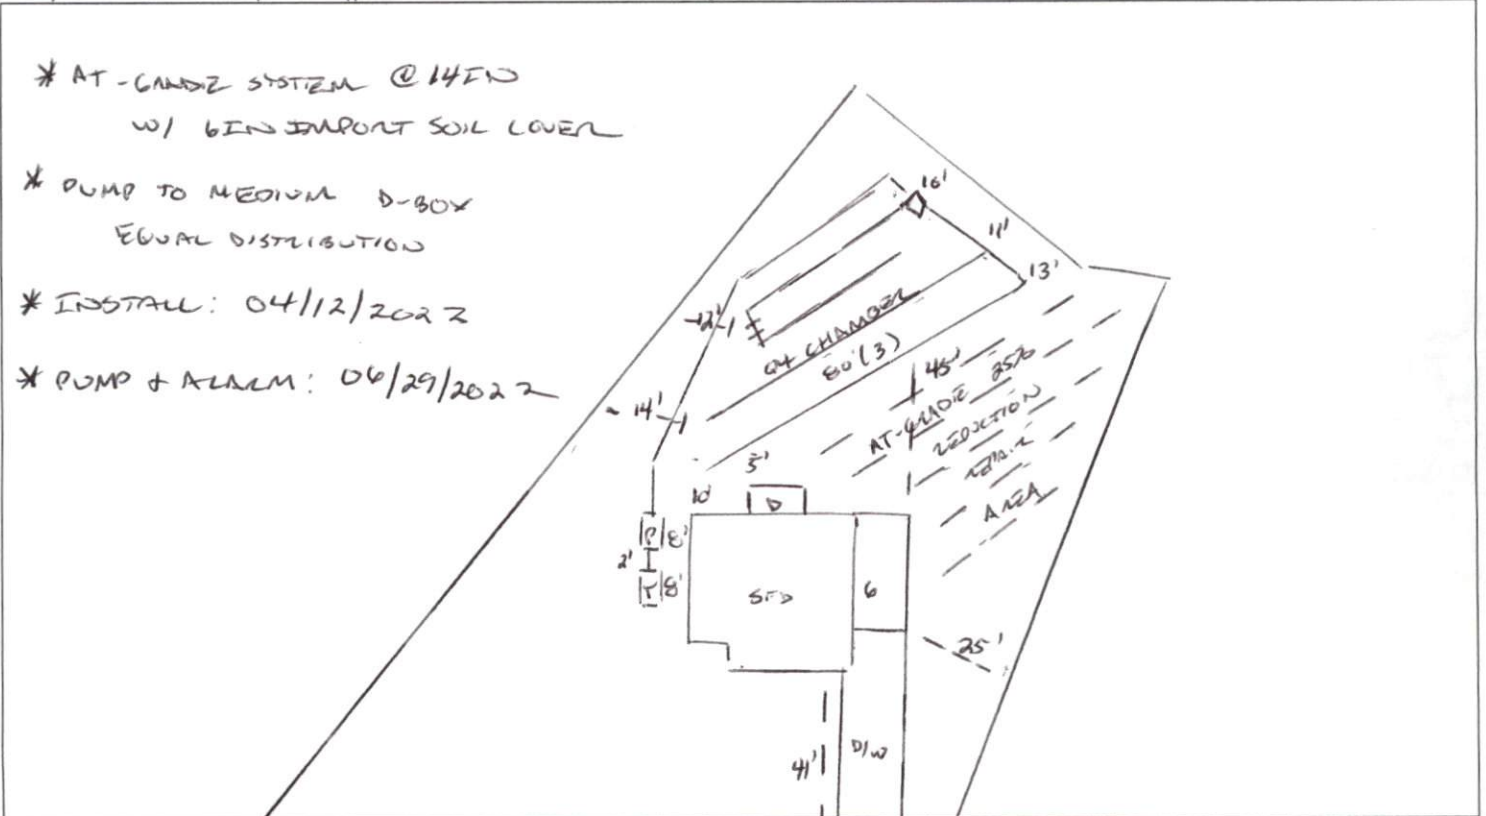 * AT-GRADE SYSTEM @ 14IN
W/ 6IN IMPORT SOIL COVER
* PUMP TO MEDIUM D-BOX
EQUAL DISTRIBUTION
* INSTALL: 04/12/2022
* PUMP & ALARM: 06/29/2022
10'
11'
13'
12'
Q4 CHAMBER
80'(3)
14'
45'
AT-GRADE 25%
REDUCTION
REPAIR
AREA
5'
10'
D
P 8'
2'
T 8'
SFD
G
25'
41'
D/W